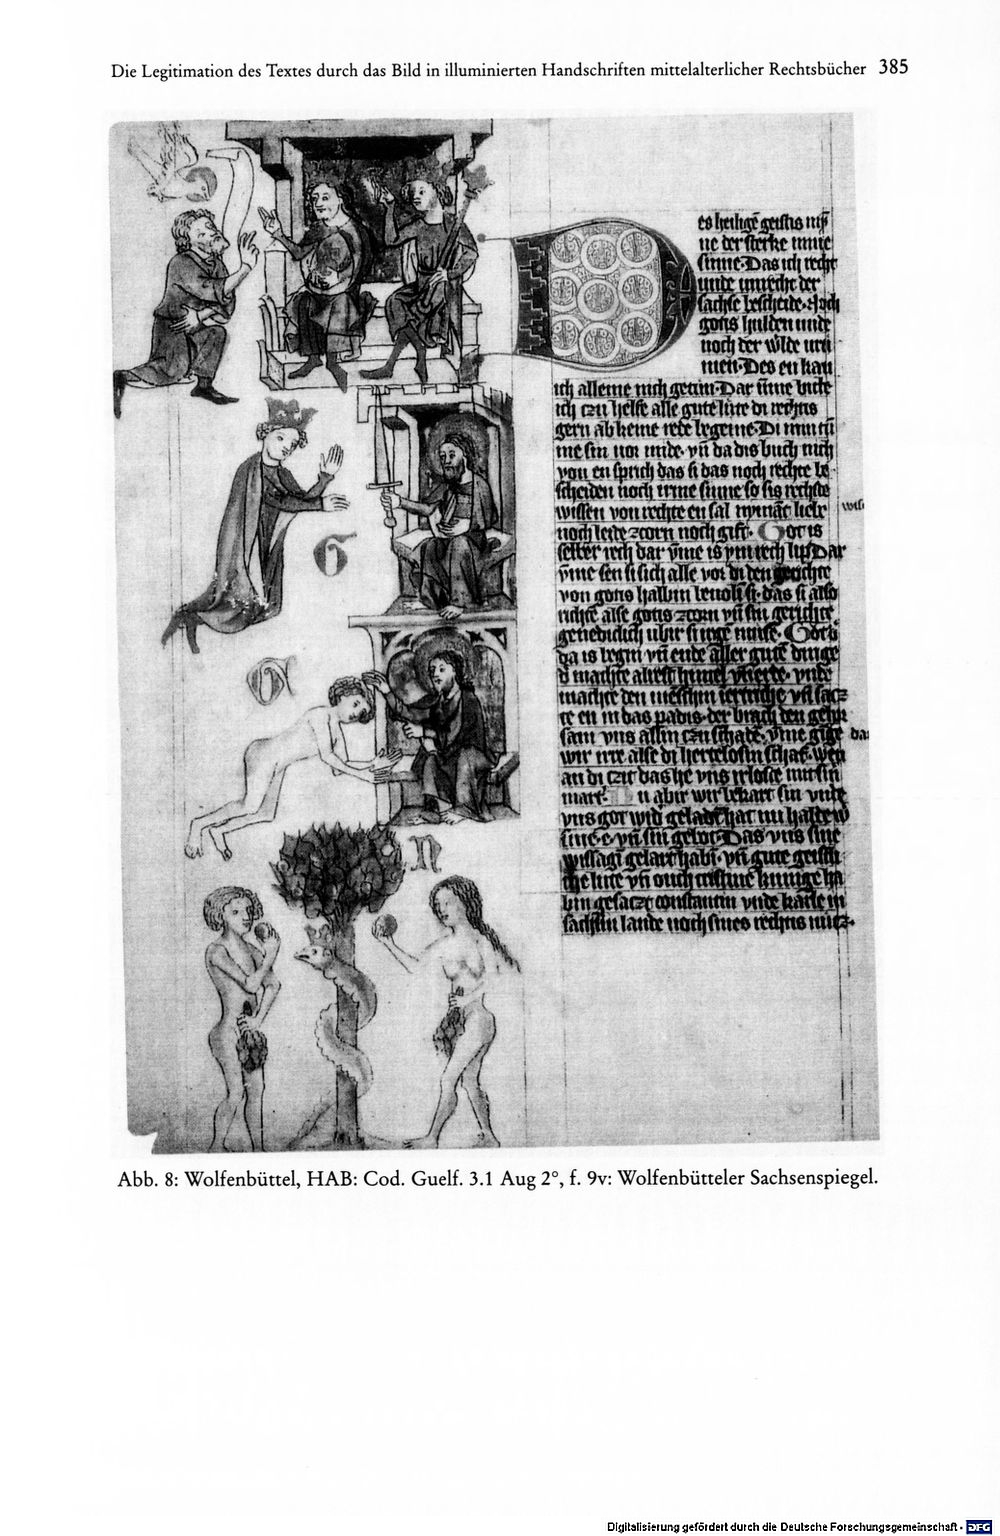 Die Legitimation des Textes durch das Bild in illuminierten Handschriften mittelalterlicher Rechtsbücher 385
es heilige geistis
ne der sterke mine
sinne. Das ich recht
unde unrecht der
sachse bescheide. Noch
gotis hulden unde
noch der w'lde
men. Des en kan
ich alleine nich getun. Dar ume bitte
ich czu helfe alle gute lute di rechtis
gern ab keine rede begeine. Di min
me sin unde. vn da dis buch nich
von en sprich das si das noch rechte be
scheiden noch irme sinne so sis rechste
wissen von rechte en sal nyman lieb
noch leide zcorn noch gift. Got is
selber rech dar vme is ym rech lip. Dar
vme sen si sich alle vor di den gerichte
von gotis halbin bevoln si. das si also
richte alse gotis zcorn vn sin gerichte
genediclich ubir si muse. Got
da is begin vn ende aller gute dinge
d machte alrest himel vn erde. vnde
machte den menschin vn sacz
te en in das padis. der brach den gehor
sam vns allin czu schade. vme gige
da
wir irre alse di hertelosin schaf.
an di czit das he vns irloste mit sin
mart. Nu abir wir bekart sin vnde
vns got wid geladt hat nu halde w
sine e. vn sin gebot. Das vns sine
wissagi gelart habi. vn gute geistli
che lute vn ouch cristine kunige ha
bin gesaczt constantin vnde karle in
sachsin lande noch sines rechtis
G
G
N
Abb. 8: Wolfenbüttel, HAB: Cod. Guelf. 3.1 Aug 2°, f. 9v: Wolfenbütteler Sachsenspiegel.
Digitalisierung gefördert durch die Deutsche Forschungsgemeinschaft - DFG